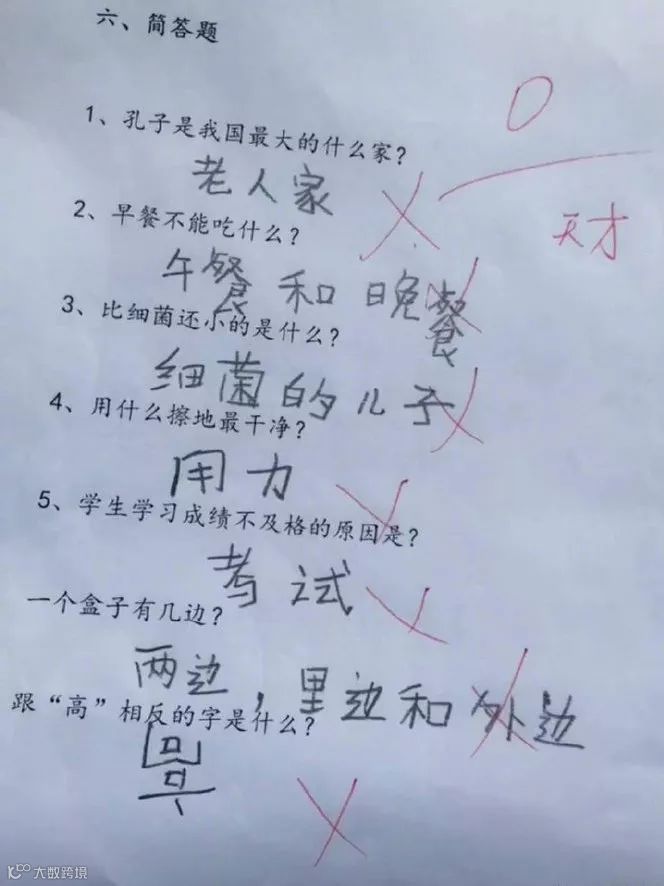 六、简答题
0
天才
1、孔子是我国最大的什么家？
老人家
2、早餐不能吃什么？
午餐和晚餐
3、比细菌还小的是什么？
细菌的儿子
4、用什么擦地最干净？
用力
5、学生学习成绩不及格的原因是？
考试
一个盒子有几边？
两边，里边和外边
跟“高”相反的字是什么？
高
大数跨境